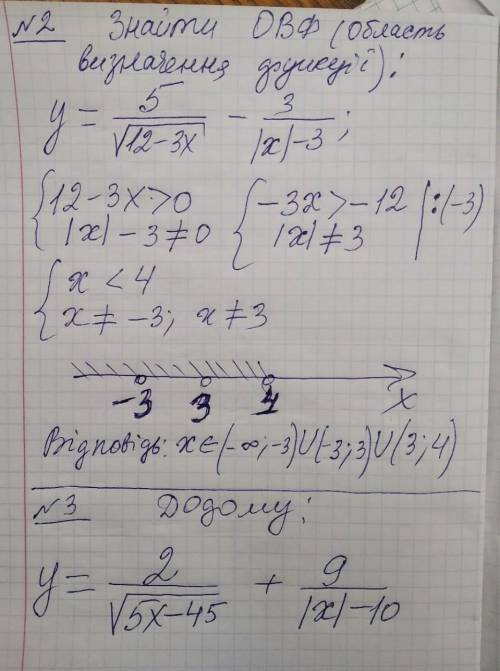 №2 Знайти ОВФ (область
визначення функції):
y = 5/√(12-3x) - 3/(|x|-3);
{12-3x>0 {-3x>-12 |:(-3)
{|x|-3≠0 {|x|≠3
{x<4
{x≠-3; x≠3
-3 3 4 x
Відповідь: x∈(-∞;-3)∪(-3;3)∪(3;4)
№3 Додому:
y = 2/√(5x-45) + 9/(|x|-10)